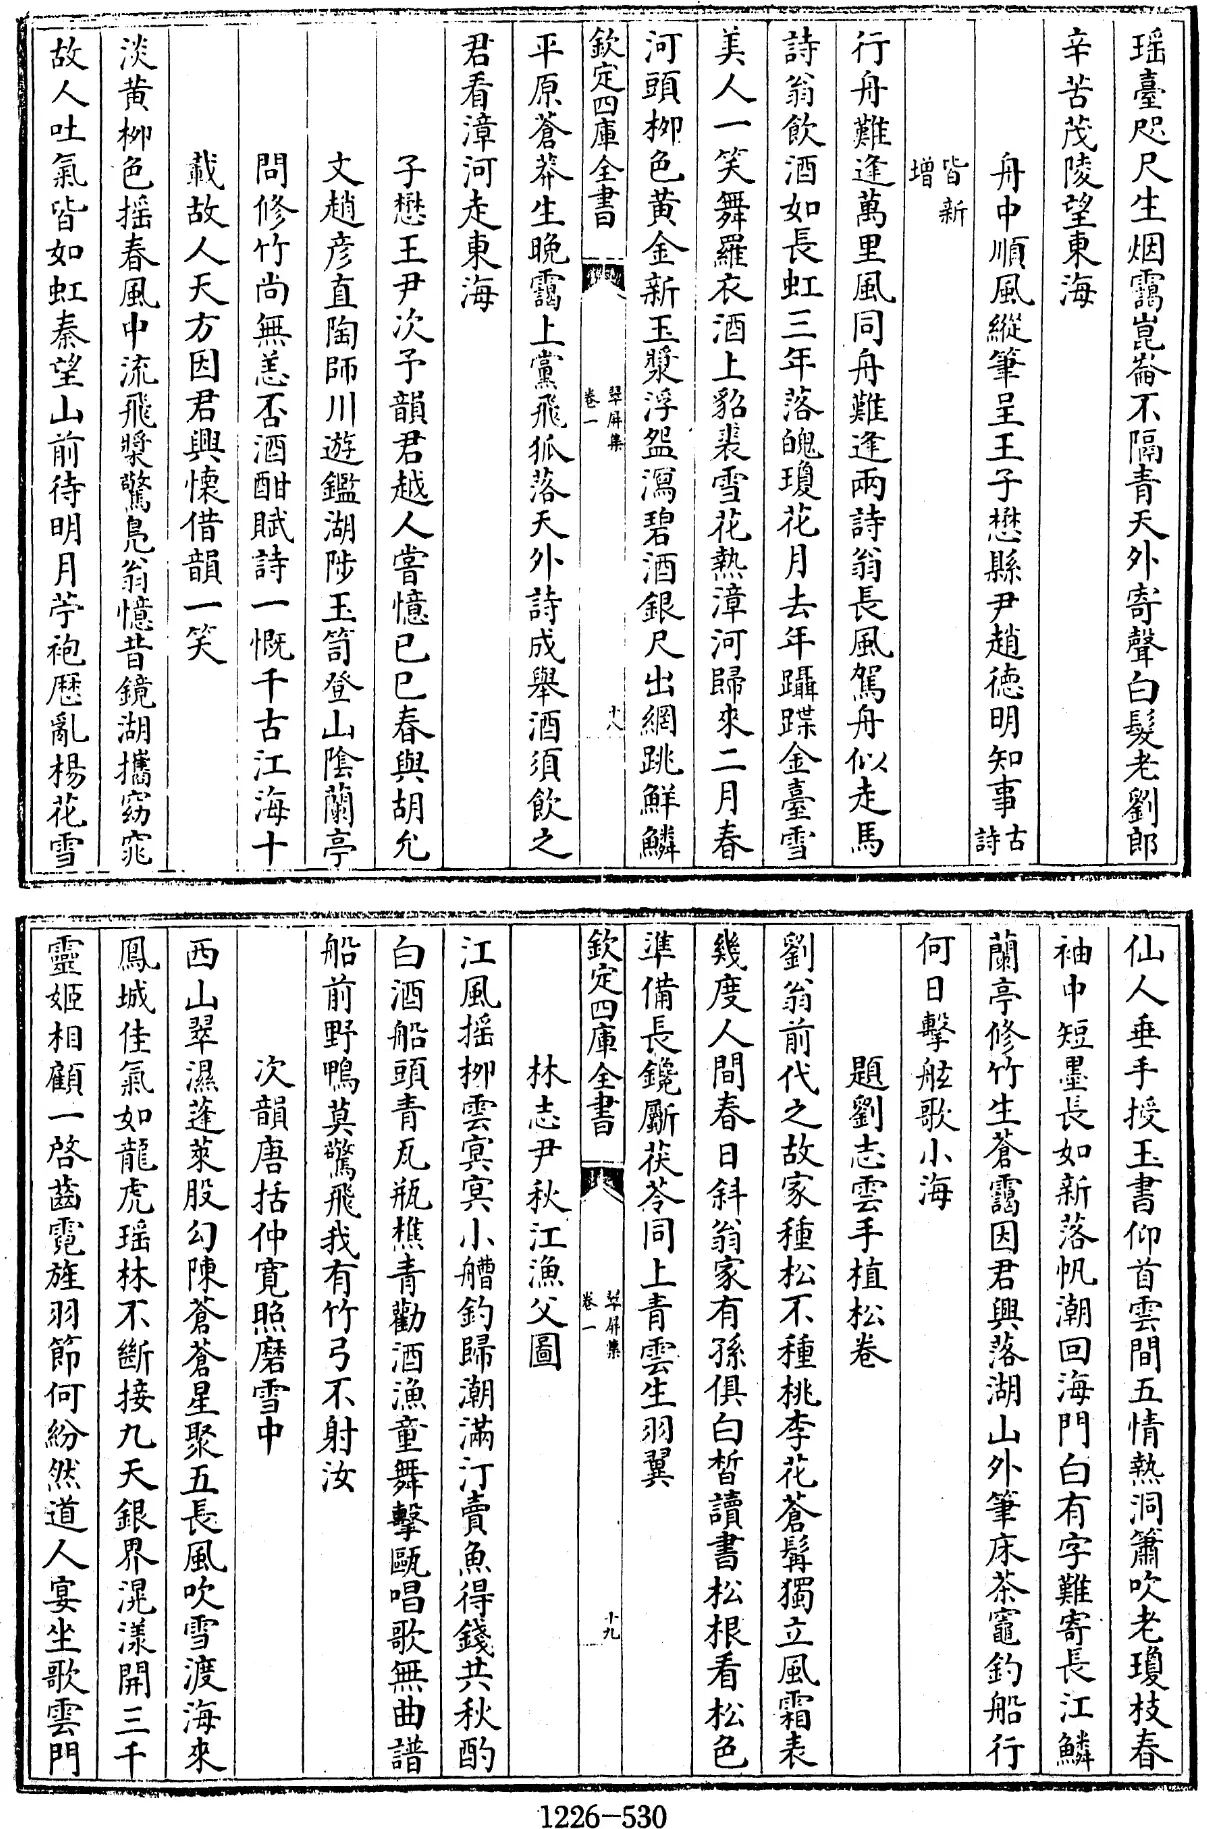 瑶臺咫尺生烟靄崑崙不隔青天外寄聲白髮老劉郎
辛苦茂陵望東海
舟中順風縱筆呈王子懋縣尹趙德明知事古詩
皆新增
行舟難逢萬里風同舟難逢兩詩翁長風駕舟似走馬
詩翁飲酒如長虹三年落魄瓊花月去年躡蹀金臺雪
美人一笑舞羅衣酒上貂裘雪花熱漳河歸來二月春
河頭栁色黄金新玉漿浮盌瀉碧酒銀尺出網跳鮮鱗
欽定四庫全書
翠屏集
卷一
十八
平原蒼莽生晚靄上黨飛狐落天外詩成舉酒須飲之
君看漳河走東海
子懋王尹次予韻君越人嘗憶已巳春與胡允
文趙彦直陶師川遊鑑湖陟玉笥登山陰蘭亭
問修竹尚無恙否酒酣賦詩一慨千古江海十
載故人天方因君興懷借韻一笑
淡黄栁色揺春風中流飛槳驚鳬翁憶昔鏡湖攜窈窕
故人吐氣皆如虹秦望山前待明月苧袍歴亂楊花雪
仙人垂手授玉書仰首雲間五情熱洞簫吹老瓊枝春
袖中短墨長如新落帆潮回海門白有字難寄長江鱗
蘭亭修竹生蒼靄因君興落湖山外筆床茶竈釣船行
何日擊舷歌小海
題劉志雲手植松卷
劉翁前代之故家種松不種桃李花蒼髯獨立風霜表
幾度人間春日斜翁家有孫俱白晳讀書松根看松色
準備長鑱斸茯苓同上青雲生羽翼
欽定四庫全書
翠屏集
卷一
十九
林志尹秋江漁父圖
江風揺栁雲冥冥小艚釣歸潮滿汀賣魚得錢共秋酌
白酒船頭青瓦瓶樵青勸酒漁童舞擊甌唱歌無曲譜
船前野鴨莫驚飛我有竹弓不射汝
次韻唐括仲寛照磨雪中
西山翠濕蓬萊股勾陳蒼蒼星聚五長風吹雪渡海來
鳳城佳氣如龍虎瑶林不斷接九天銀界滉漾開三千
靈姬相顧一啓齒霓旌羽節何紛然道人宴坐歌雲門
1226-530